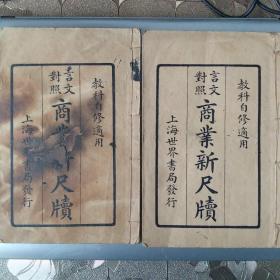 教科自修適用
言文對照
商業新尺牘
上海世界書局發行
教科自修適用
言文對照
商業新尺牘
上海世界書局發行